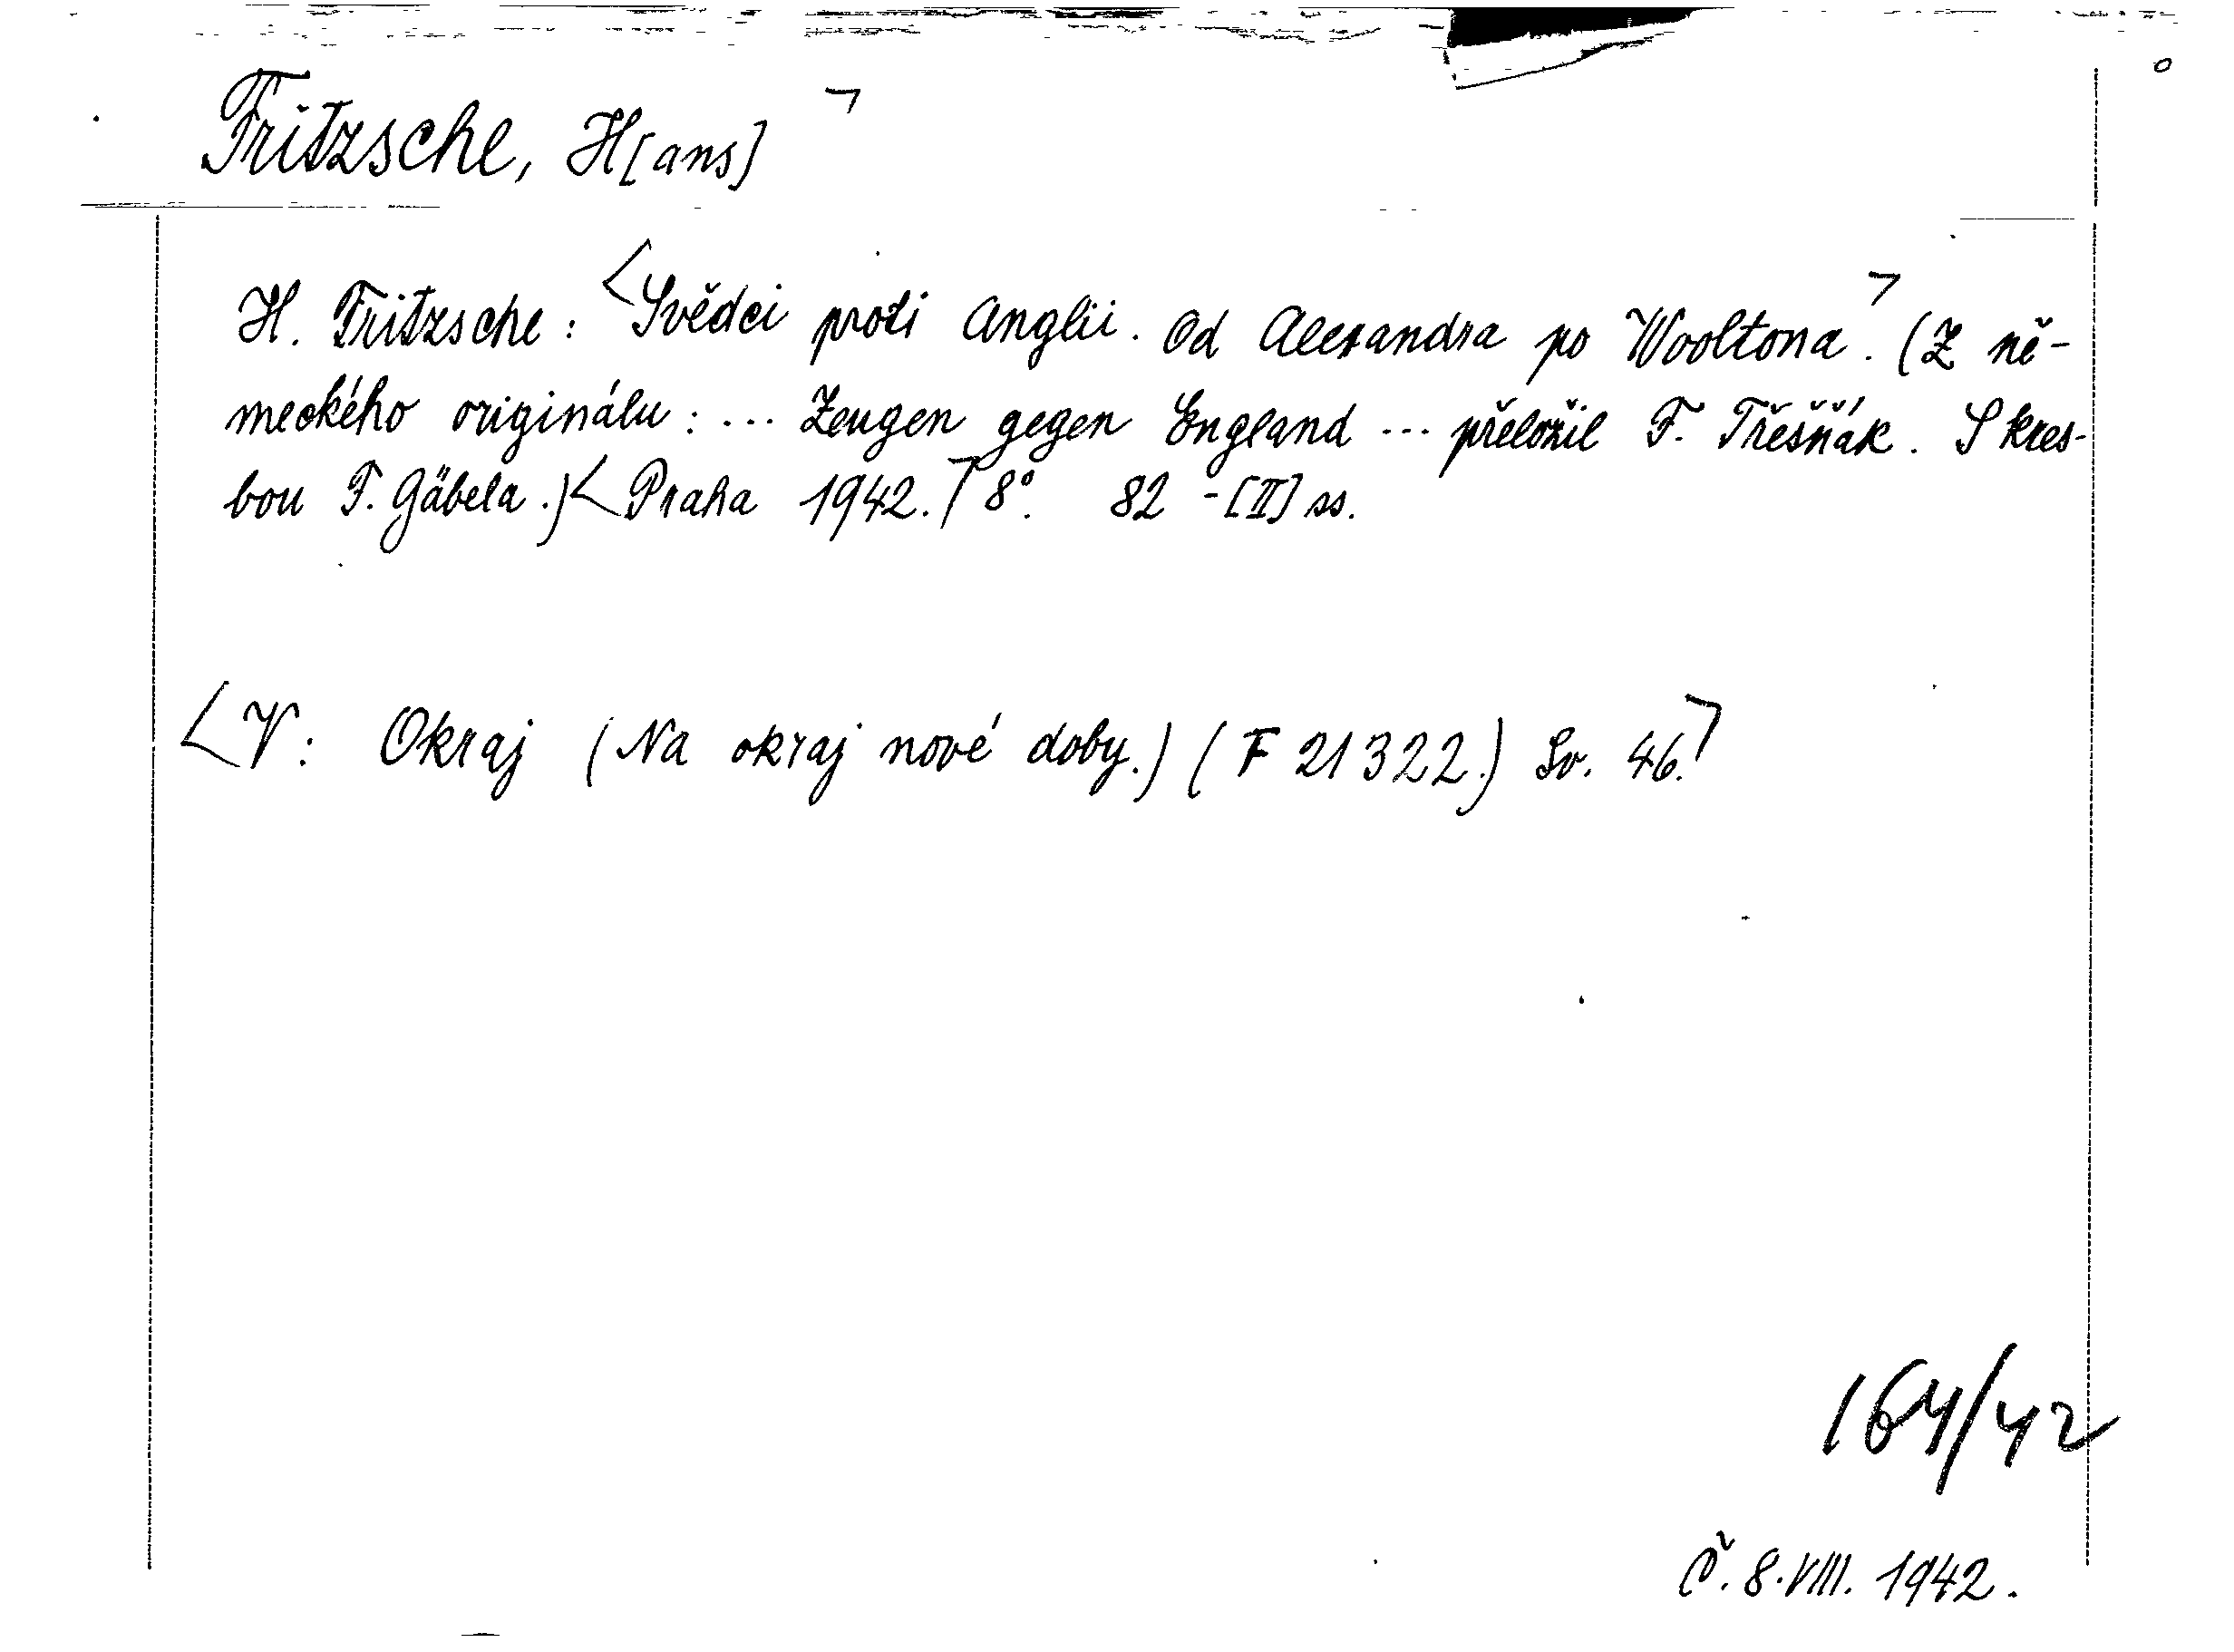 Fritzsche, H[ans]
H. Fritzsche: Svědci proti Anglii. Od Alexandra po Wooltona. (Z ně-
meckého originálu: ... Zeugen gegen England ... přeložil F. Třešňák. S kres-
bou F. Gäbela.) Praha 1942. 8°. 82 -[II] ss.
V: Okraj (Na okraj nové doby.) (F 21322.) Sv. 46.
164/42
Č. 8.VIII. 1942.